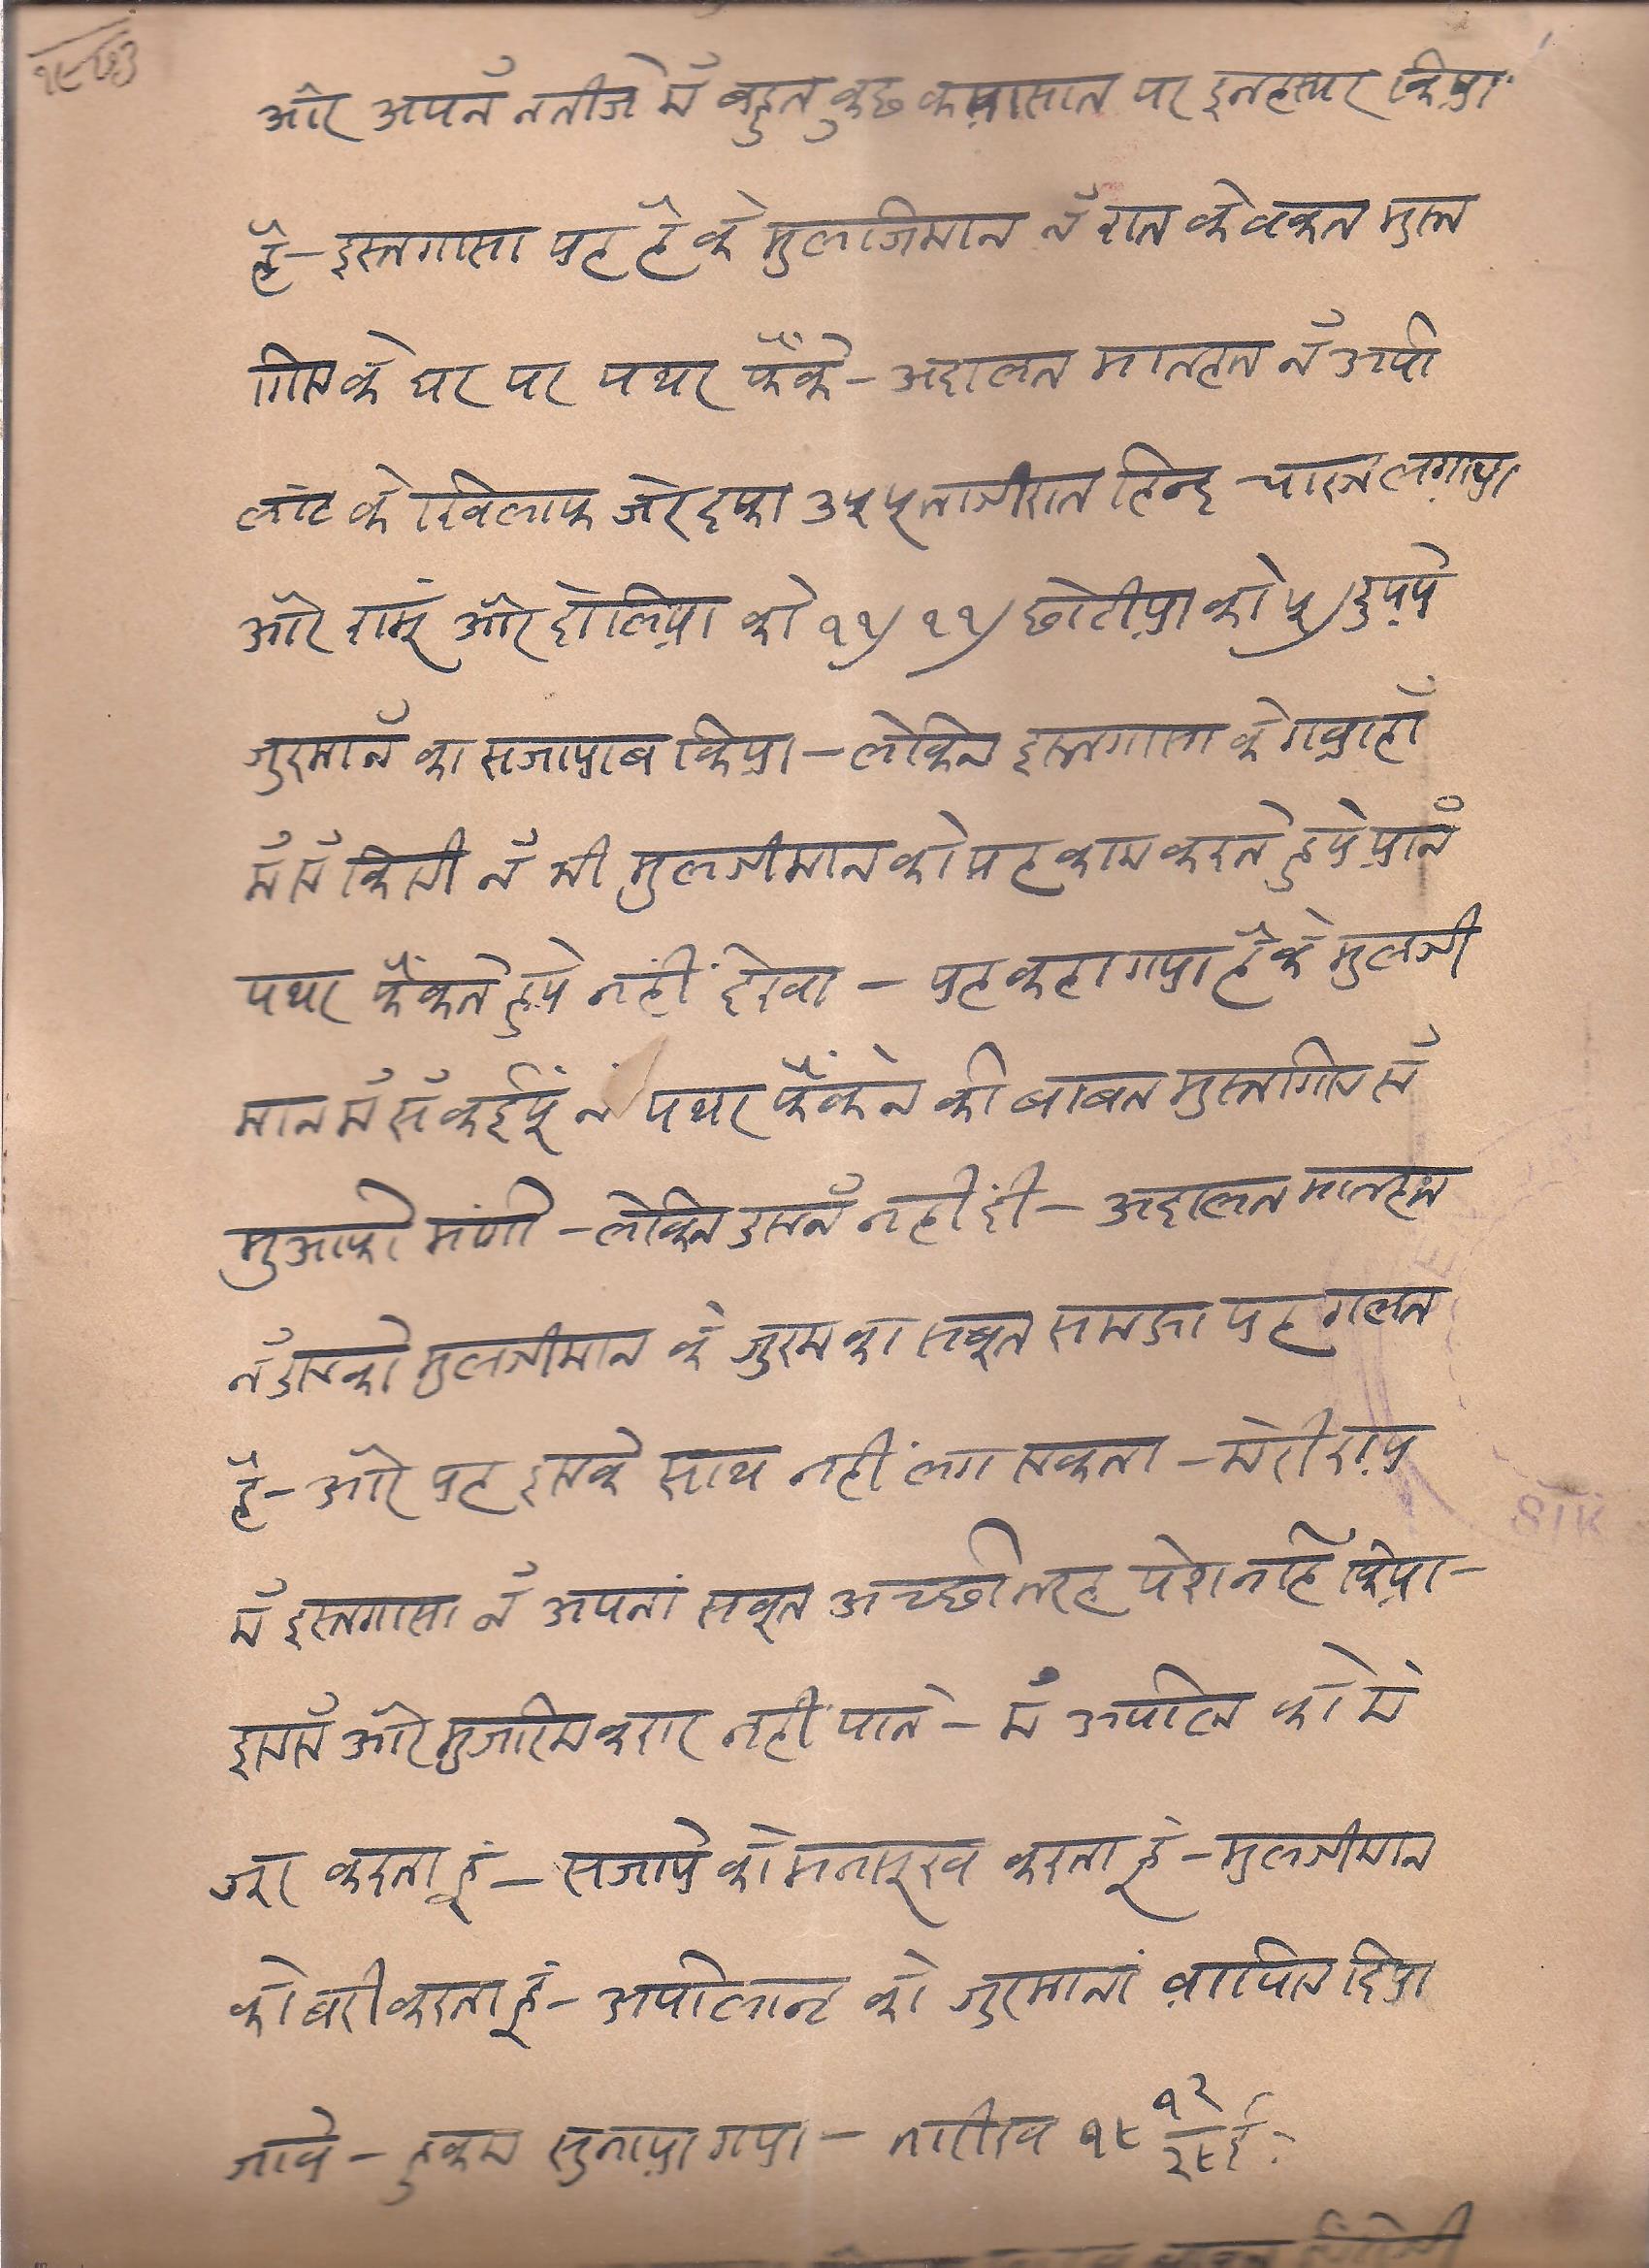 और अपनें नतीजे में बहुत कुछ कयासात पर इनहसार किया
है - इस्तगासा यह है के मुलजिमान नें रात के वकत मुस्त
गिस के घर पर पथर फेंके - अदालत मातहत नें अपी
लांट के खिलाफ जेर दफा ३५५ ताजीरात हिन्द चारज लगाया
और रामूं और दोलिया को ११) ११) छोटीया को ५) रुपये
जुरमानें का सजायाब किया - लेकिन इस्तगासा के गवाहों
में सें किसी नें भी मुलजीमान को यह काम करते हुये यानें
पथर फेंकते हुये नहीं देखा - यह कहा गया है के मुलजी
मान में सें कईयूं नें पथर फेंकने की बाबत मुस्तगिस सें
मुआफी मांगी - लेकिन उसनें नहीं दी - अदालत मातहत
नें उसको मुलजीमान के जुरम का सबूत समझा यह गलत
है - और यह इसके साथ नहीं लग सकता - मेरी राय
में इस्तगासा नें अपनां सबूत अच्छी तरह पेश नहिं किया -
इससें और मुजरिम करार नहीं पाते - में अपील को मं
जूर करता हूं - सजाये को मनसूख करता हूं - मुलजीमान
को बरी करता हूं - अपीलान्ट को जुरमानां वापिस दिया
जावे - हुकम सुनाया गया - तारीख १९ १२/२९ ई.